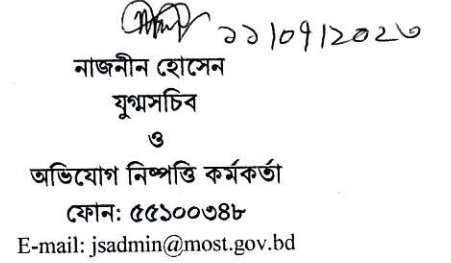 ১১/০৭/২০২৩
নাজনীন হোসেন
যুগ্মসচিব
ও
অভিযোগ নিষ্পত্তি কর্মকর্তা
ফোন: ৫৫১০০৩৪৮
E-mail: jsadmin@most.gov.bd